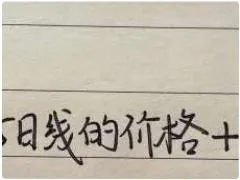 日线的价格+